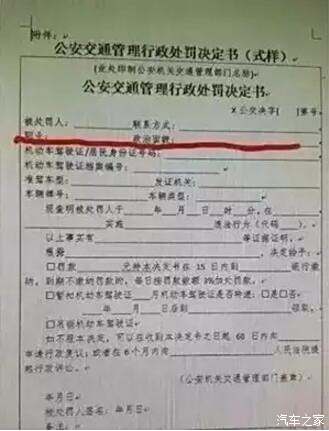 附件:
公安交通管理行政处罚决定书(式样)
(此处印制公安机关交通管理部门名称)
公安交通管理行政处罚决定书
X公交决字[ ]第号
被处罚人: 联系方式:
职业: 政治面貌:
机动车驾驶证/居民身份证号码:
机动车驾驶证档案编号:
准驾车型: 发证机关:
车辆牌号: 车辆类型:
现查明被处罚人于 年 月 日 时 分,在
实施 违法行为(代码 )。
以上事实有 等证据证明。
根据 ,决定给予:
□罚款 元持本决定书在15日内到 银行缴
纳。到期不缴纳罚款的,每日按罚款数额3%加处罚款。
□暂扣机动车驾驶证 月机动车驾驶证是否转递:□是□否
年 月 日 年 月 日
□吊销机动车驾驶证
如不服本决定,可以在收到本决定书之日起60日内向
申请行政复议;或者在6个月内向 人民法院提
起行政诉讼。
(公安机关交通管理部门盖章)
年月日
被处罚人签名: 年月日
备注:
汽车之家